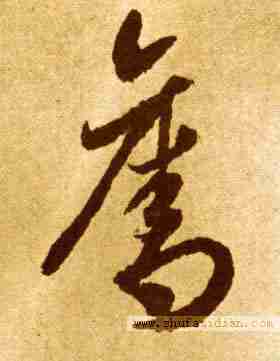 舊
www.shufazidian.com